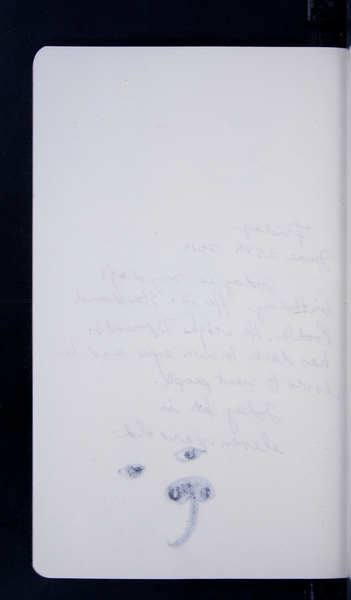 Friday
June 25th 2010
Today is my dog's
birthday. He is a Standard
Poodle. He weighs pounds.
has dark brown eyes and he
loves to meet people.
Today he is
eleven years old.